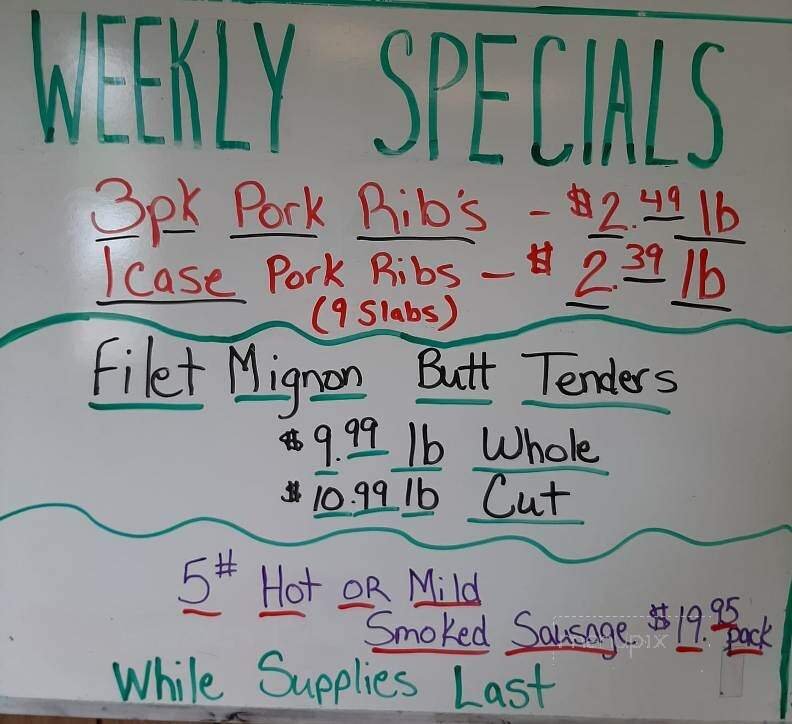 WEEKLY SPECIALS
3pk Pork Rib's - $2.49 lb
1 case Pork Ribs - $2.39 lb
(9 Slabs)
Filet Mignon Butt Tenders
$9.99 lb Whole
$10.99 lb Cut
5# Hot OR Mild
Smoked Sausage $19.95 pack
While Supplies Last